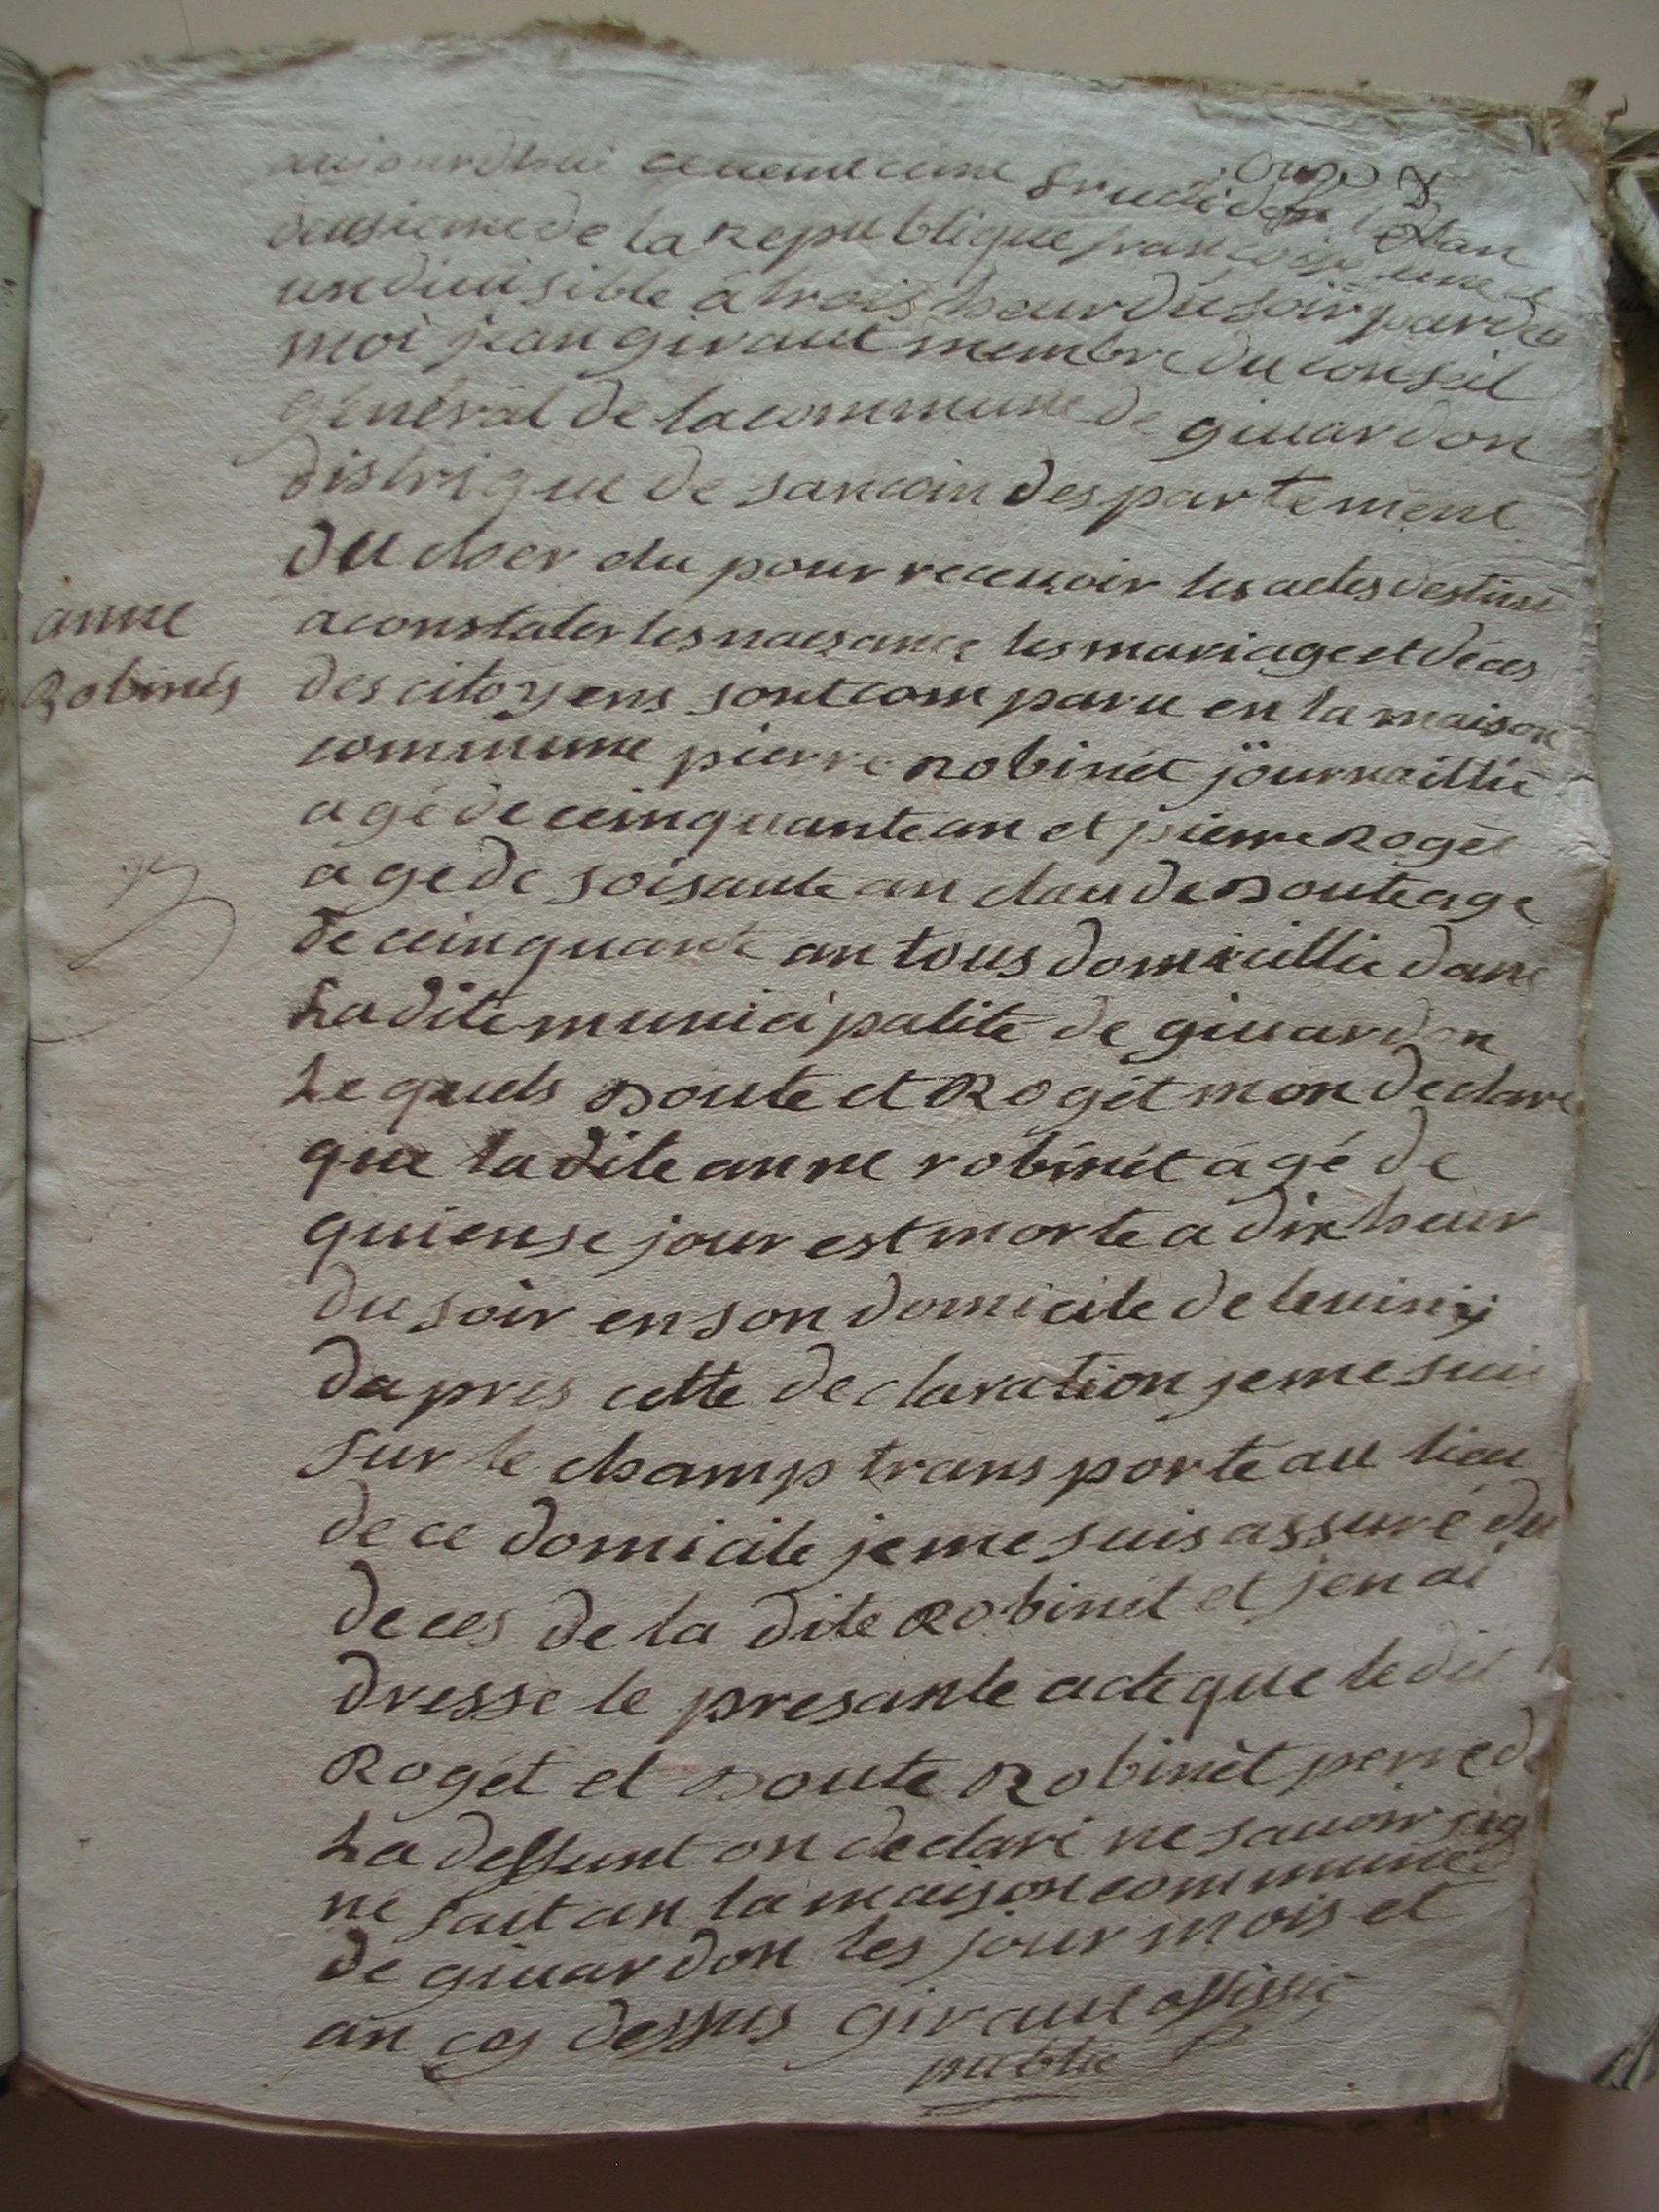 onze
aujourdhui ce fructidor lan
deusieme de la Republique francoise une et
undiuisible a trois heur du soir par deu
moi jean giraut membre du conseil
géneral de la commune de giuardon
distrique de sancoin despartement
du cher elu pour receuoir les actes destiné
a constater les naesance les mariage et déces
anne
Robinés
des citoyens sont comparu en la maison
commune pierre Robinét journaillié
agé de ceinquante an et pierre Rogét
age de soisante an claude Doute age
de ceinquante an tous domicillie dans
La dite municipalite de giuardon
Lequels Doute et Rogét mon declare
que la dite anne robinét agé de
quiense jour est morte a dix heur
du soir en son domicile de
dapres cette declaration je me suis
sur le champ transporte au lieu
de ce domicile je me suis assuré du
deces de la dite Robinét et jen ai
dresse le presante acte que le dit
Rogét et Doute Robinét perre de
La deffunt on declaré ne sauoir sig
ne fait an la maison commune
de giuardon les jour mois et
an ces dessus giraut offissie
public